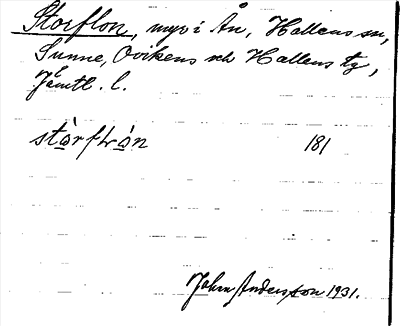 Storflon, myr i Ån, Hallens sn,
Sunne, Ovikens och Hallens tg,
Jämtl. l.
stòrflón 181
John Andersson 1931.